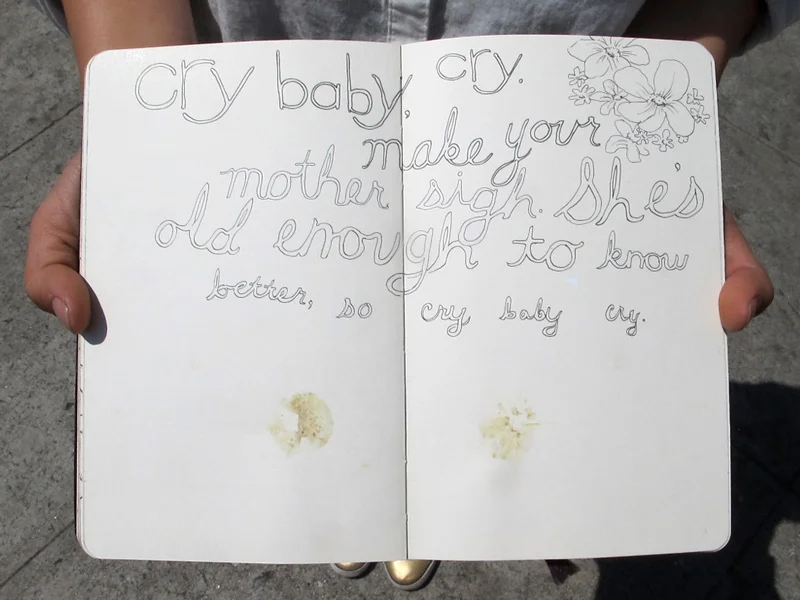 cry baby, cry.
make your
mother sigh. She's
old enough to know
better, so cry baby cry.